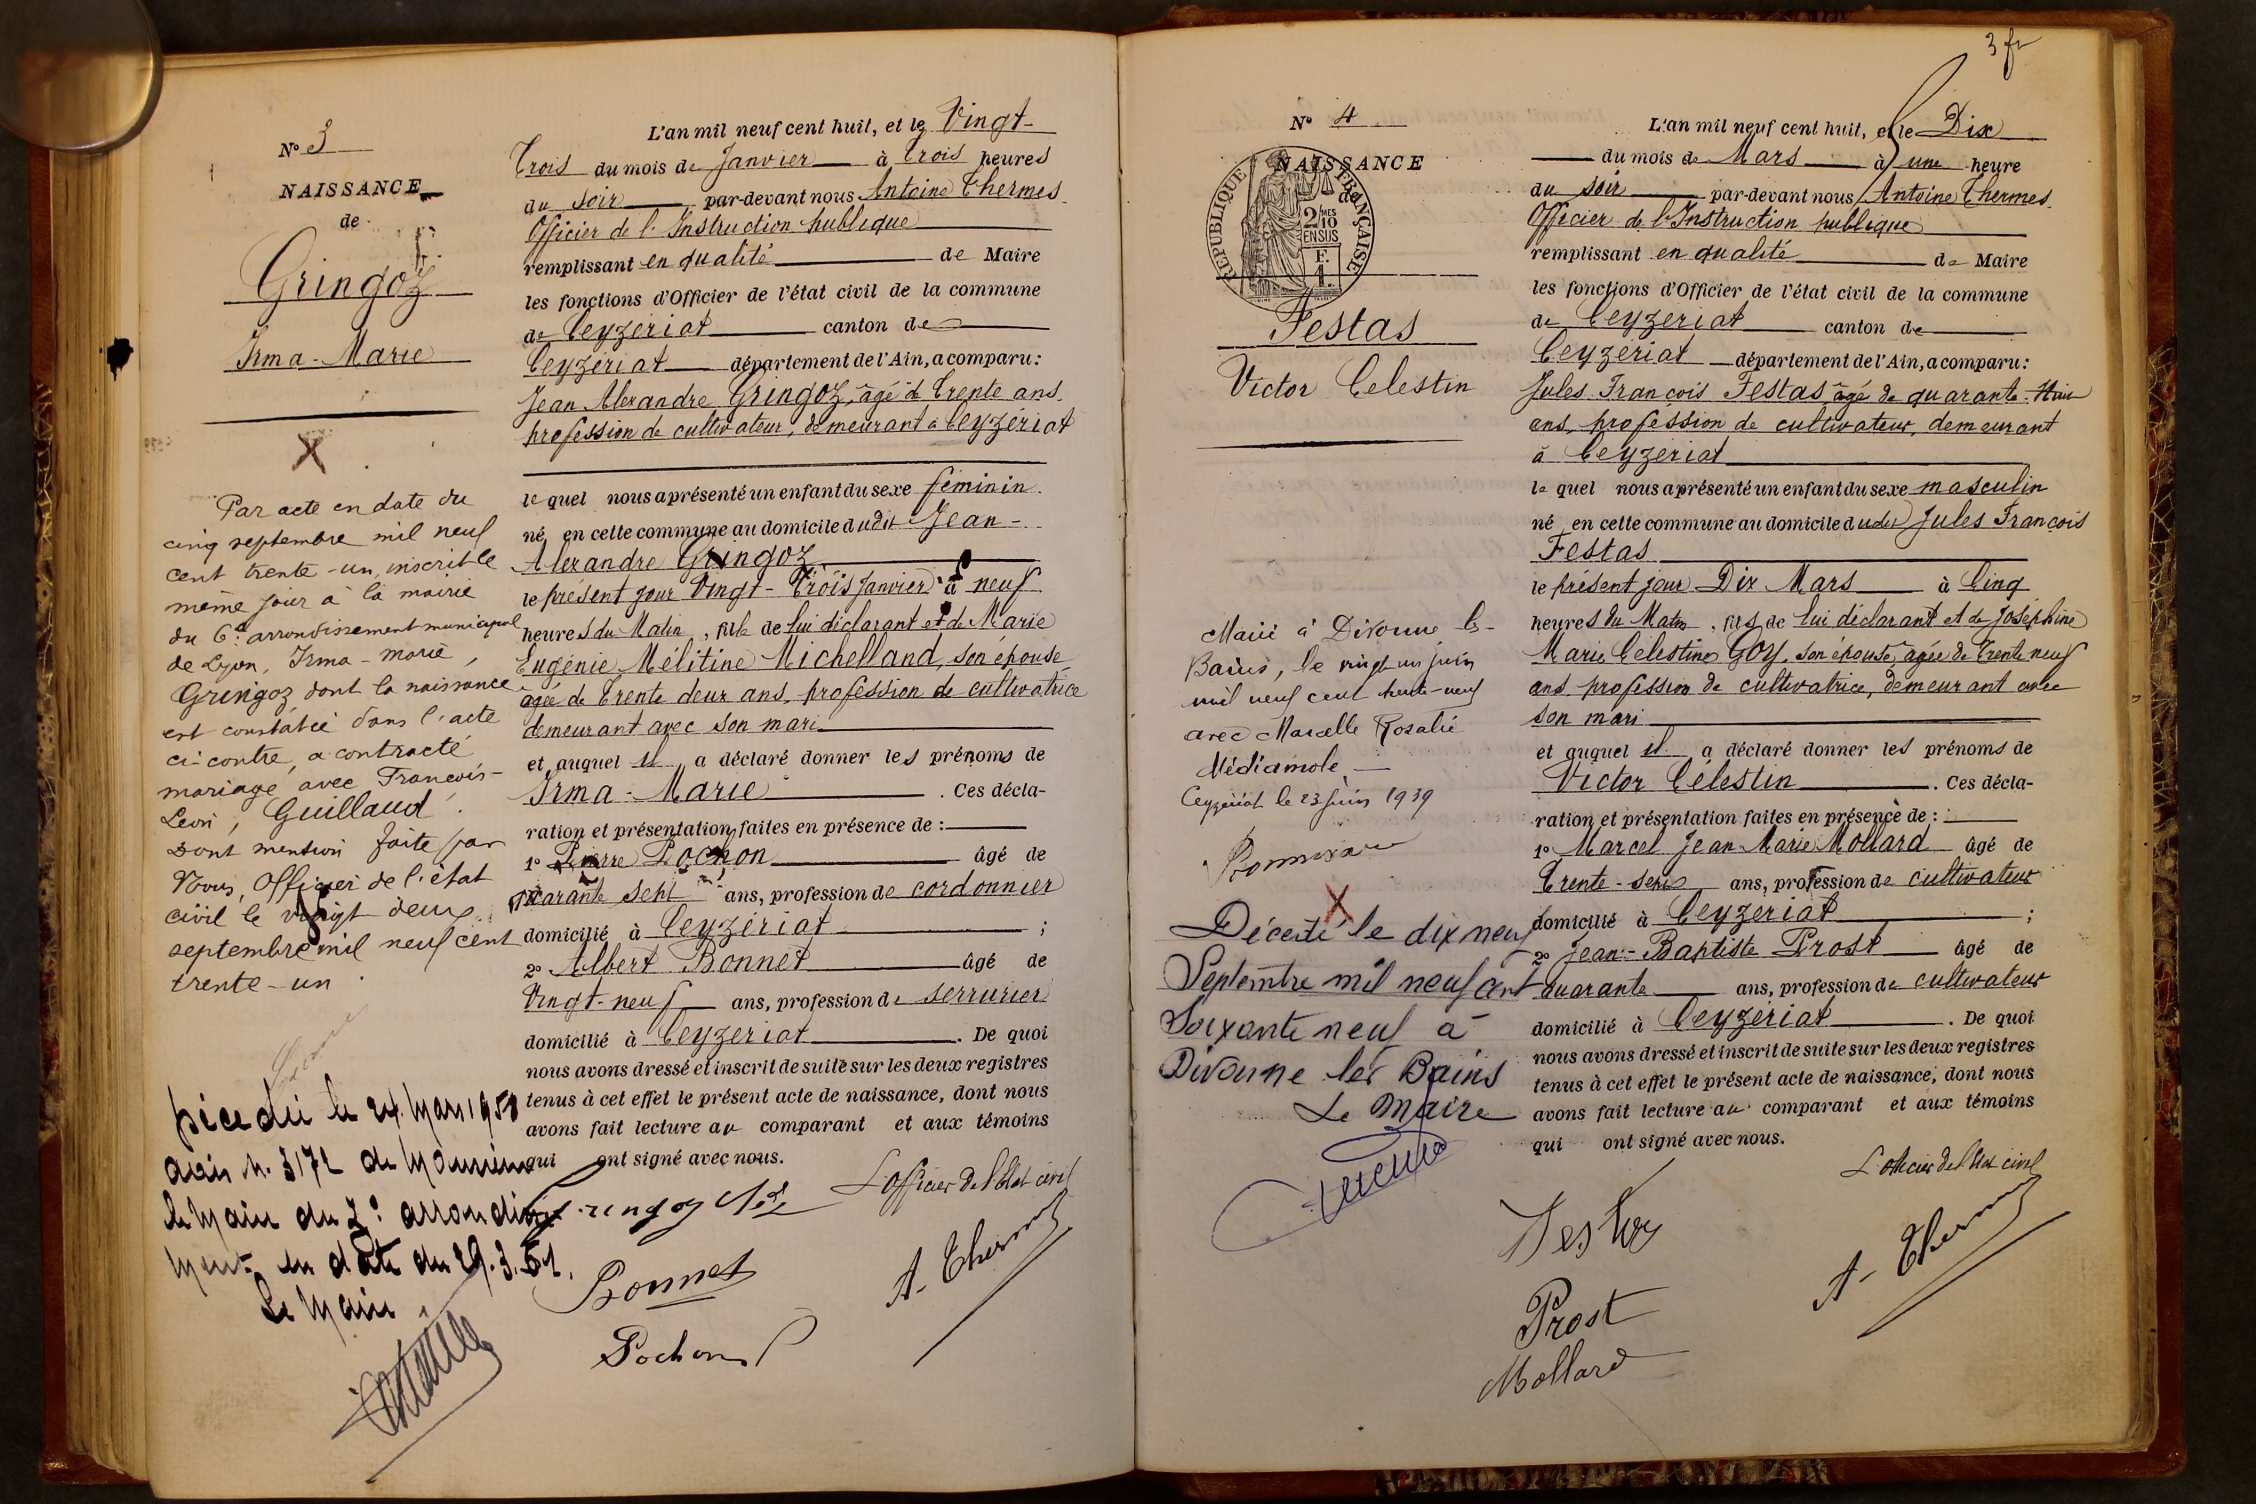 Nº 3
NAISSANCE
de
Gringoz
Irma-Marie
X
Par acte en date du
cinq septembre mil neuf
cent trente-un, inscrit le
même jour à la mairie
du 6e arrondissement municipal
de Lyon, Irma-Marie,
Gringoz dont la naissance
est constatée dans l'acte
ci-contre, a contracté
mariage avec François-
Léon, Guillaud.
Dont mention faite par
Nous, Officier de l'état
civil le vingt deux
septembre mil neuf cent
trente-un
le 24 Mars 195
avis N. 3172 de Monsieur
le Maire du 2e arrondisse
ment en date du 29.3.51.
Le Maire
L'an mil neuf cent huit, et le Vingt-
Trois du mois de Janvier à Trois heures
du soir par-devant nous Antoine Thermes
Officier de l'Instruction publique
remplissant en qualité de Maire
les fonctions d'Officier de l'état civil de la commune
de Ceyzériat canton de
Ceyzériat département de l'Ain, a comparu:
Jean Alexandre Gringoz, âgé de Trente ans
profession de cultivateur, demeurant à Ceyzériat
le quel nous a présenté un enfant du sexe féminin
né en cette commune au domicile dudit Jean-
Alexandre Gringoz
le présent jour Vingt-Trois Janvier à neuf
heures du Matin, fille de lui déclarant et de Marie
Eugénie Mélitine Michelland, son épouse
âgée de Trente deux ans, profession de cultivatrice
demeurant avec son mari
et auquel il a déclaré donner les prénoms de
Irma-Marie. Ces décla-
ration et présentation faites en présence de :
1º Pierre Pochon âgé de
quarante sept ans, profession de cordonnier
domicilié à Ceyzériat ;
2º Albert Bonnet âgé de
Vingt-neuf ans, profession de serrurier
domicilié à Ceyzériat. De quoi
nous avons dressé et inscrit de suite sur les deux registres
tenus à cet effet le présent acte de naissance, dont nous
avons fait lecture au comparant et aux témoins
qui ont signé avec nous.
L'officier de l'Etat civil
Gringoz
Bonnet
A. Thermes
Pochon
3 fr
Nº 4
NAISSANCE
de
RÉPUBLIQUE FRANÇAISE
2/10MES
EN SUS
F.
1.
Festas
Victor Celestin
Marié à Divonne les-
Bains, le vingt un juin
mil neuf cent trente-neuf
avec Marcelle Rosalie
Médiamole
Ceyzériat le 23 juin 1939
X
Décédé le dix neuf
Septembre mil neuf cent
Soixante neuf à
Divonne les Bains
Le Maire
L'an mil neuf cent huit, et le Dix
du mois de Mars à une heure
du soir par-devant nous Antoine Thermes
Officier de l'Instruction publique
remplissant en qualité de Maire
les fonctions d'Officier de l'état civil de la commune
de Ceyzériat canton de
Ceyzériat département de l'Ain, a comparu:
Jules François Festas âgé de quarante-Huit
ans, profession de cultivateur, demeurant
à Ceyzériat
le quel nous a présenté un enfant du sexe masculin
né en cette commune au domicile dudit Jules François
Festas
le présent jour Dix Mars à Cinq
heures du Matin, fils de lui déclarant et de Joséphine
Marie Célestine Goy, son épouse, âgée de Trente neuf
ans, profession de cultivatrice, demeurant avec
son mari
et auquel il a déclaré donner les prénoms de
Victor Célestin. Ces décla-
ration et présentation faites en présence de :
1º Marcel Jean Marie Mollard âgé de
Trente-sept ans, profession de cultivateur
domicilié à Ceyzériat ;
2º Jean-Baptiste Prost âgé de
quarante ans, profession de cultivateur
domicilié à Ceyzériat. De quoi
nous avons dressé et inscrit de suite sur les deux registres
tenus à cet effet le présent acte de naissance, dont nous
avons fait lecture au comparant et aux témoins
qui ont signé avec nous.
L'officier de l'Etat civil
Festas
A. Thermes
Prost
Mollard